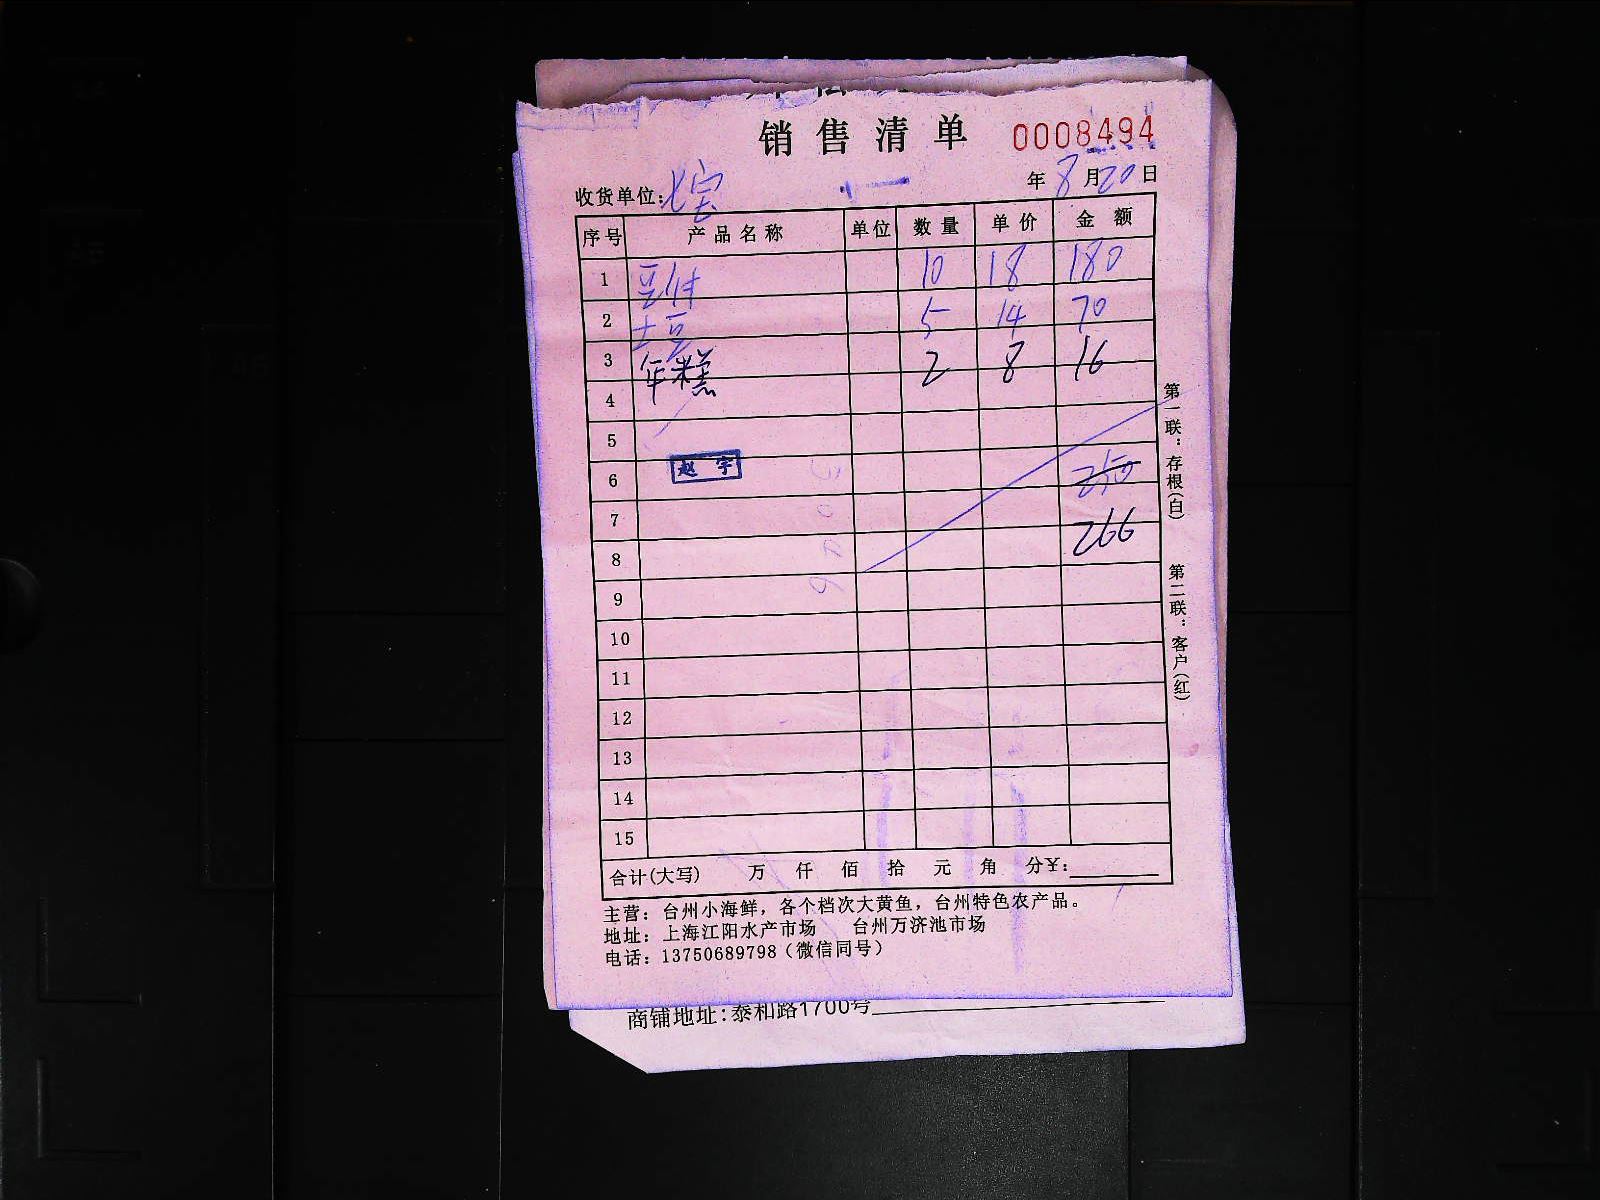 销售清单 0008494
收货单位：七宝 年8月20日
序号 产品名称 单位 数量 单价 金额
1 豆付 10 18 180
2 土豆 5 14 70
3 年糕 2 8 16
4
5
6 赵宇 250
7
8 266
9
10
11
12
13
14
15
合计(大写) 万 仟 佰 拾 元 角 分¥:
主营：台州小海鲜，各个档次大黄鱼，台州特色农产品。
地址：上海江阳水产市场 台州万济池市场
电话：13750689798（微信同号）
第一联：存根(白) 第二联：客户(红)
商铺地址：泰和路1700号